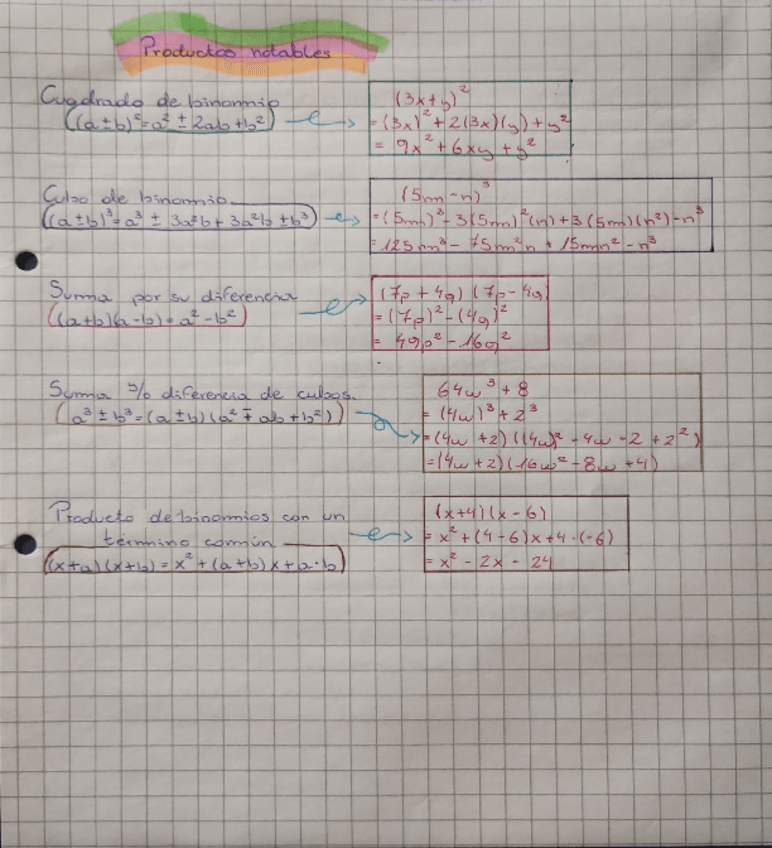 Productos notables
Cuadrado de binomio
(a ± b)² = a² ± 2ab + b²
(3x + y)²
= (3x)² + 2(3x)(y) + y²
= 9x² + 6xy + y²
Cubo de binomio
(a ± b)³ = a³ ± 3a²b + 3a²b ± b³
(5m - n)³
= (5m)³ - 3(5m)²(n) + 3(5m)(n²) - n³
= 125m³ - 75m²n + 15mn² - n³
Suma por su diferencia
(a+b)(a-b) = a² - b²
(7p + 4q)(7p - 4q)
= (7p)² - (4q)²
= 49p² - 16q²
Suma y/o diferencia de cubos.
(a³ ± b³ = (a ± b)(a² ∓ ab + b²))
64w³ + 8
= (4w)³ + 2³
= (4w + 2)((4w)² - 4w · 2 + 2²)
= (4w + 2)(16w² - 8w + 4)
Producto de binomios con un
término común
(x+a)(x+b) = x² + (a+b)x + a·b
(x+4)(x-6)
= x² + (4-6)x + 4·(-6)
= x² - 2x - 24